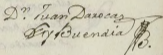 Dⁿ. Juan Daroca
y Buendia